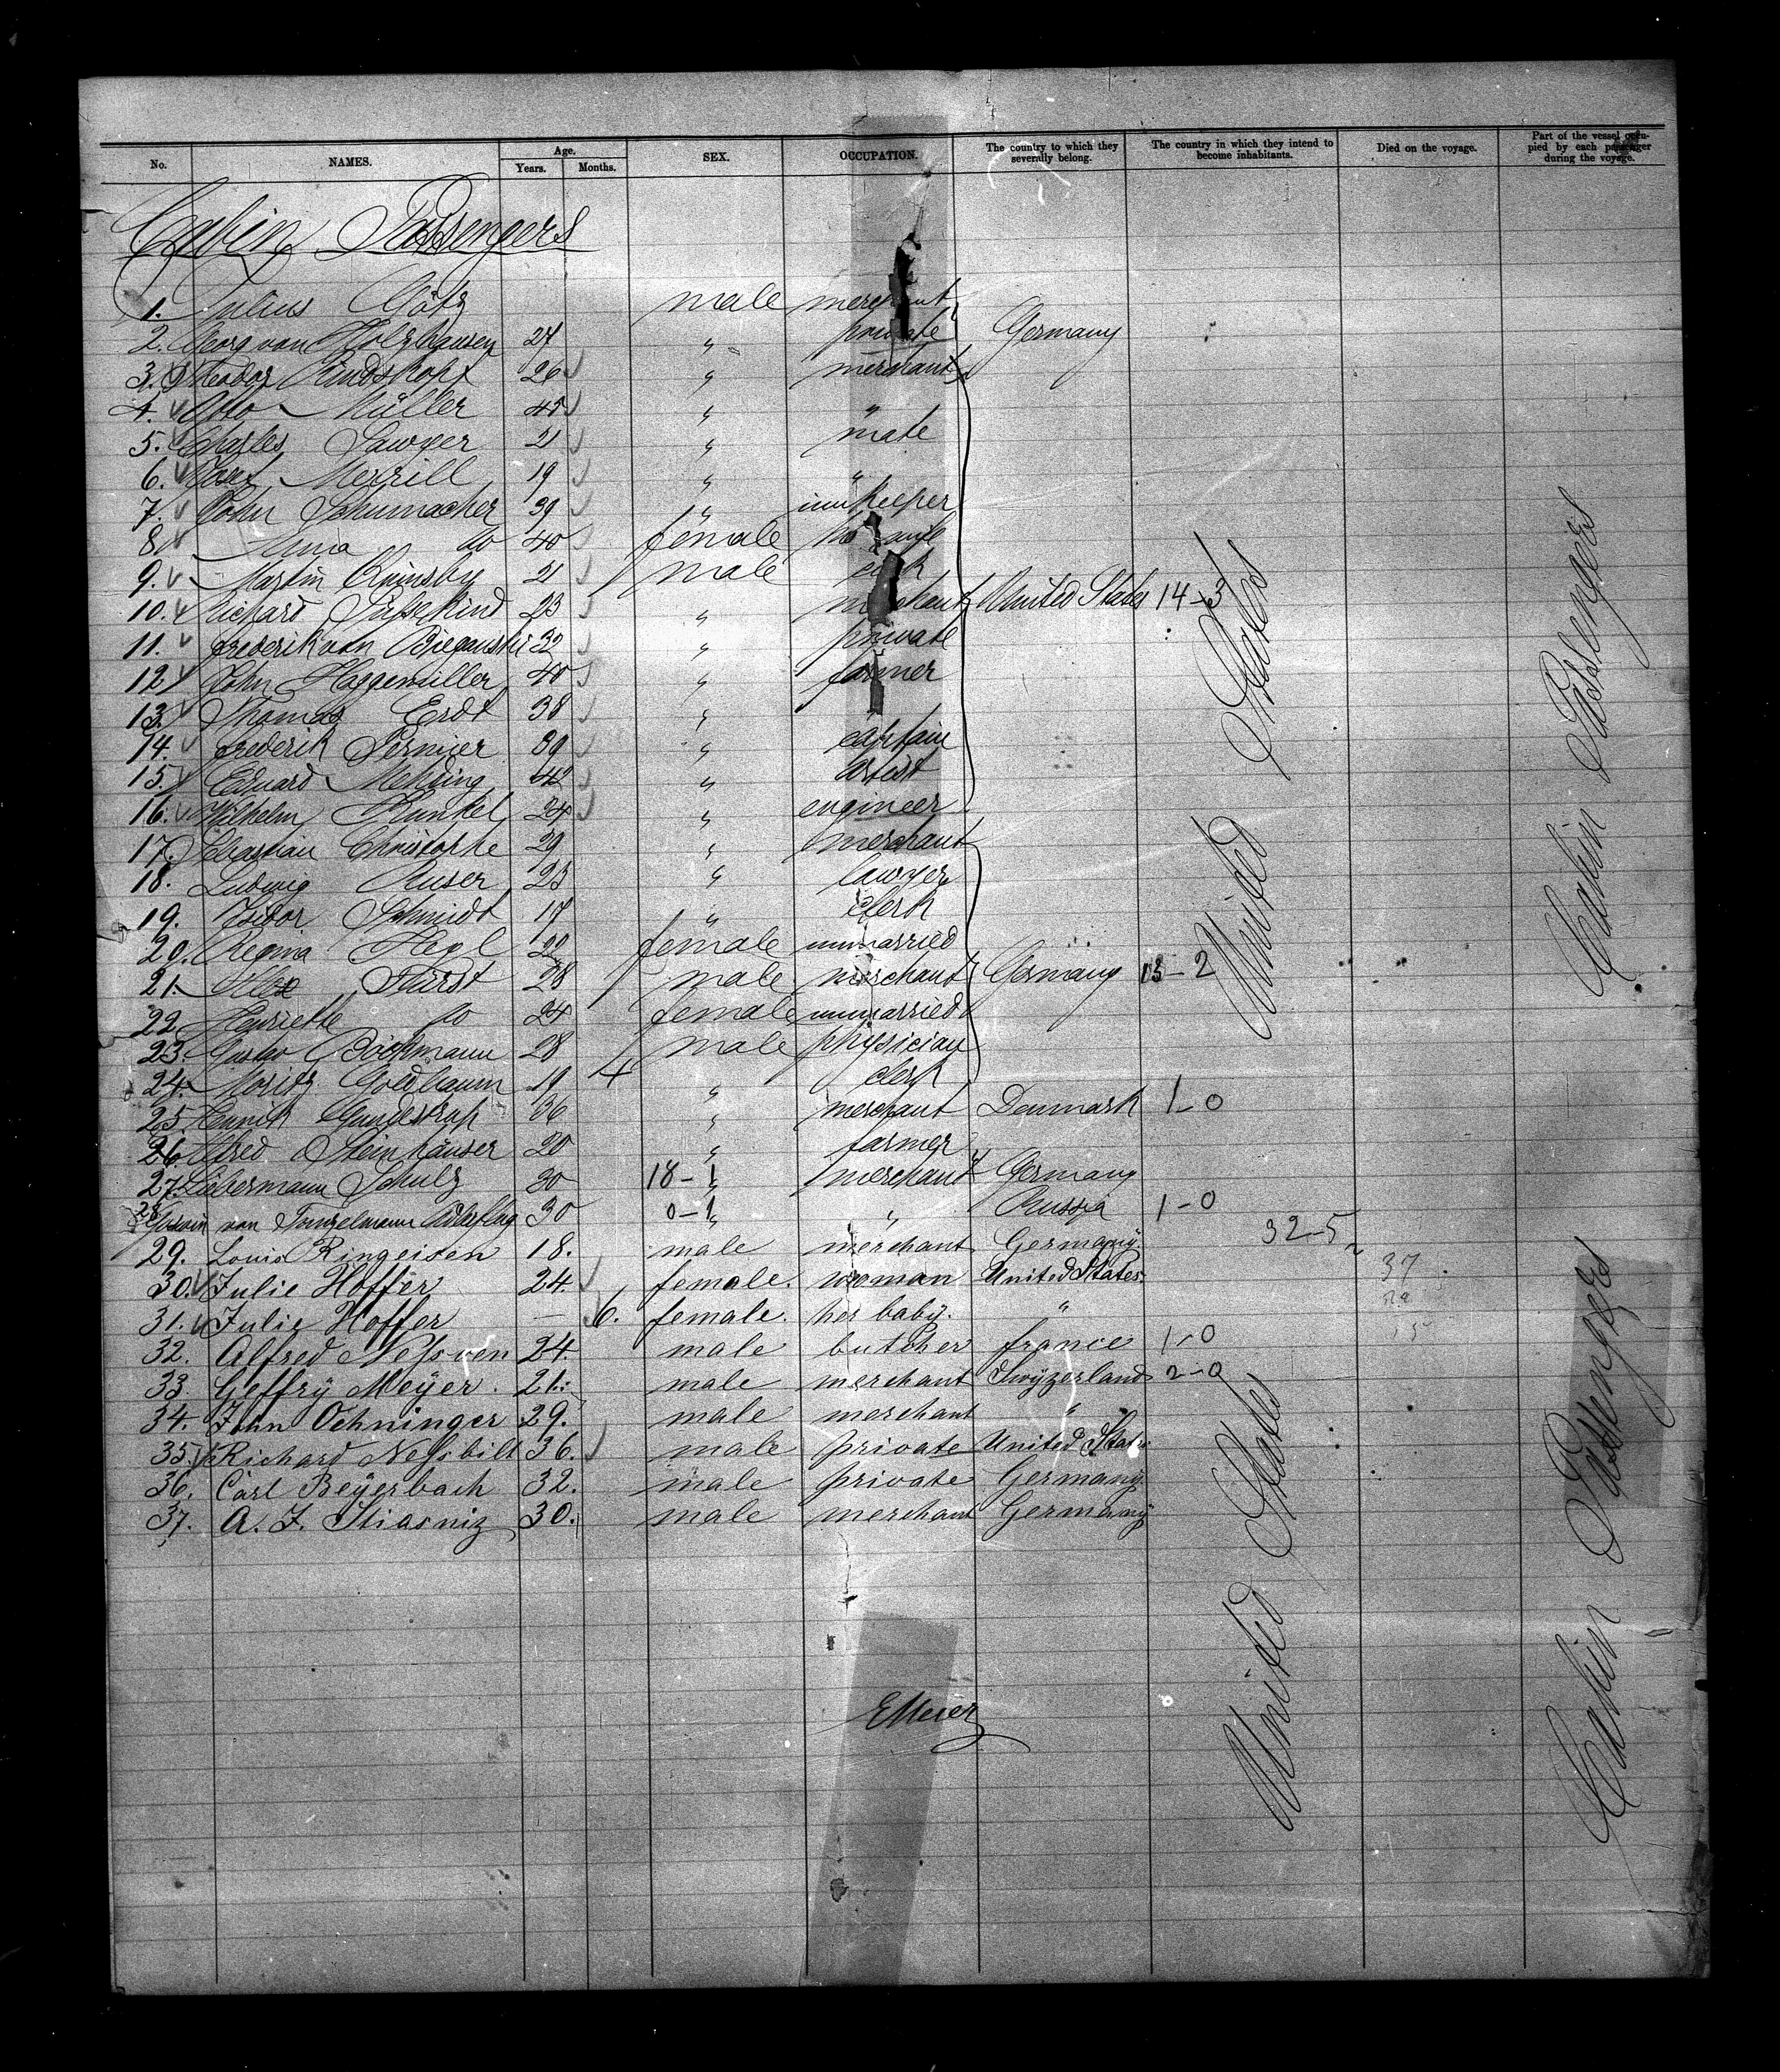 No. NAMES. Age. Years. Months. SEX. OCCUPATION. The country to which they severally belong. The country in which they intend to become inhabitants. Died on the voyage. Part of the vessel occupied by each passenger during the voyage.
Cabin Passengers
1. Julius Götz male merchant
2. Georg von Holzhausen 27 " private Germany
3. Theodor Rindskopf 26 " merchant
4. Otto Müller 45 " "
5. Charles Sawyer 21 " mate
6. Merrill 19 " "
7. John Schumacher 39 " innkeeper
8. Anna do 40 female
9. Martin 21 male
10. Richard 23 " merchant United States 14-3
11. Frederik von 32 " private
12. John Haggenmüller 40 " farmer
13. Thomas Erdt 38 " "
14. Frederik Pernier 39 " captain
15. Eduard Mehding 42 " artist
16. Wilhelm Kunkel 24 " engineer
17. Sebastian Christophe 29 " merchant
18. Ludwig Ruser 23 " lawyer
19. Isidor Schmidt 17 " clerk
20. Regina Hegl 22 female unmarried
21. Alex Fürst 28 male merchant Germany 13-2
22. Henriette do 24 female unmarried
23. Gustav Böckmann 28 male physician
24. Moritz Goldbaum 19 " clerk
25. Gundestrup 36 " merchant Denmark 1-0
26. Alfred Steinhäuser 20 " farmer
27. Liebermann Schulz 30 18-1 " merchant Germany
28. von 30 0-1 " " Russia 1-0
32-5
29. Louis Ringeisen 18. male merchant Germany.
37
30. Julie Hoffer 24. female. woman United States
31. Julie Hoffer — 6. female. her baby. "
32. Alfred 24. male butcher france 1-0
33. Geffrÿ Meÿer. 21. male merchant Swÿzerland 2-0
34. John Oehninger 29. male merchant "
35. Richard Nessbilt 36. male private United States
36. Carl Beÿerbach 32. male private Germany
37. A. J. Stiasniz 30. male merchant Germany
EMeier
United States
United States
Cabin Passengers
Cabin Passengers